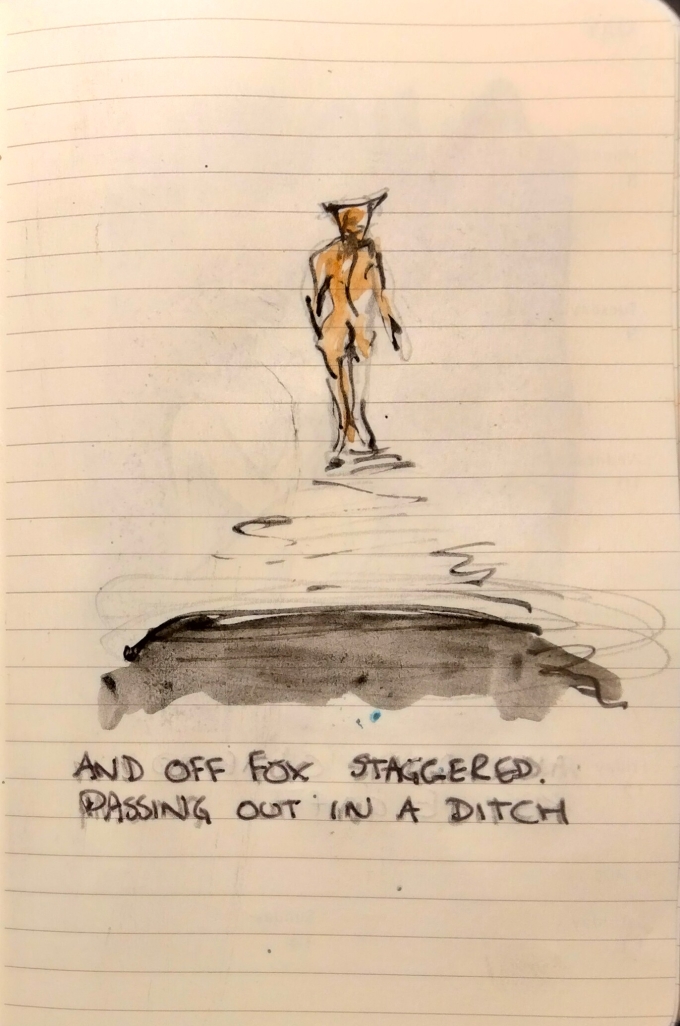 AND OFF FOX STAGGERED.
PASSING OUT IN A DITCH